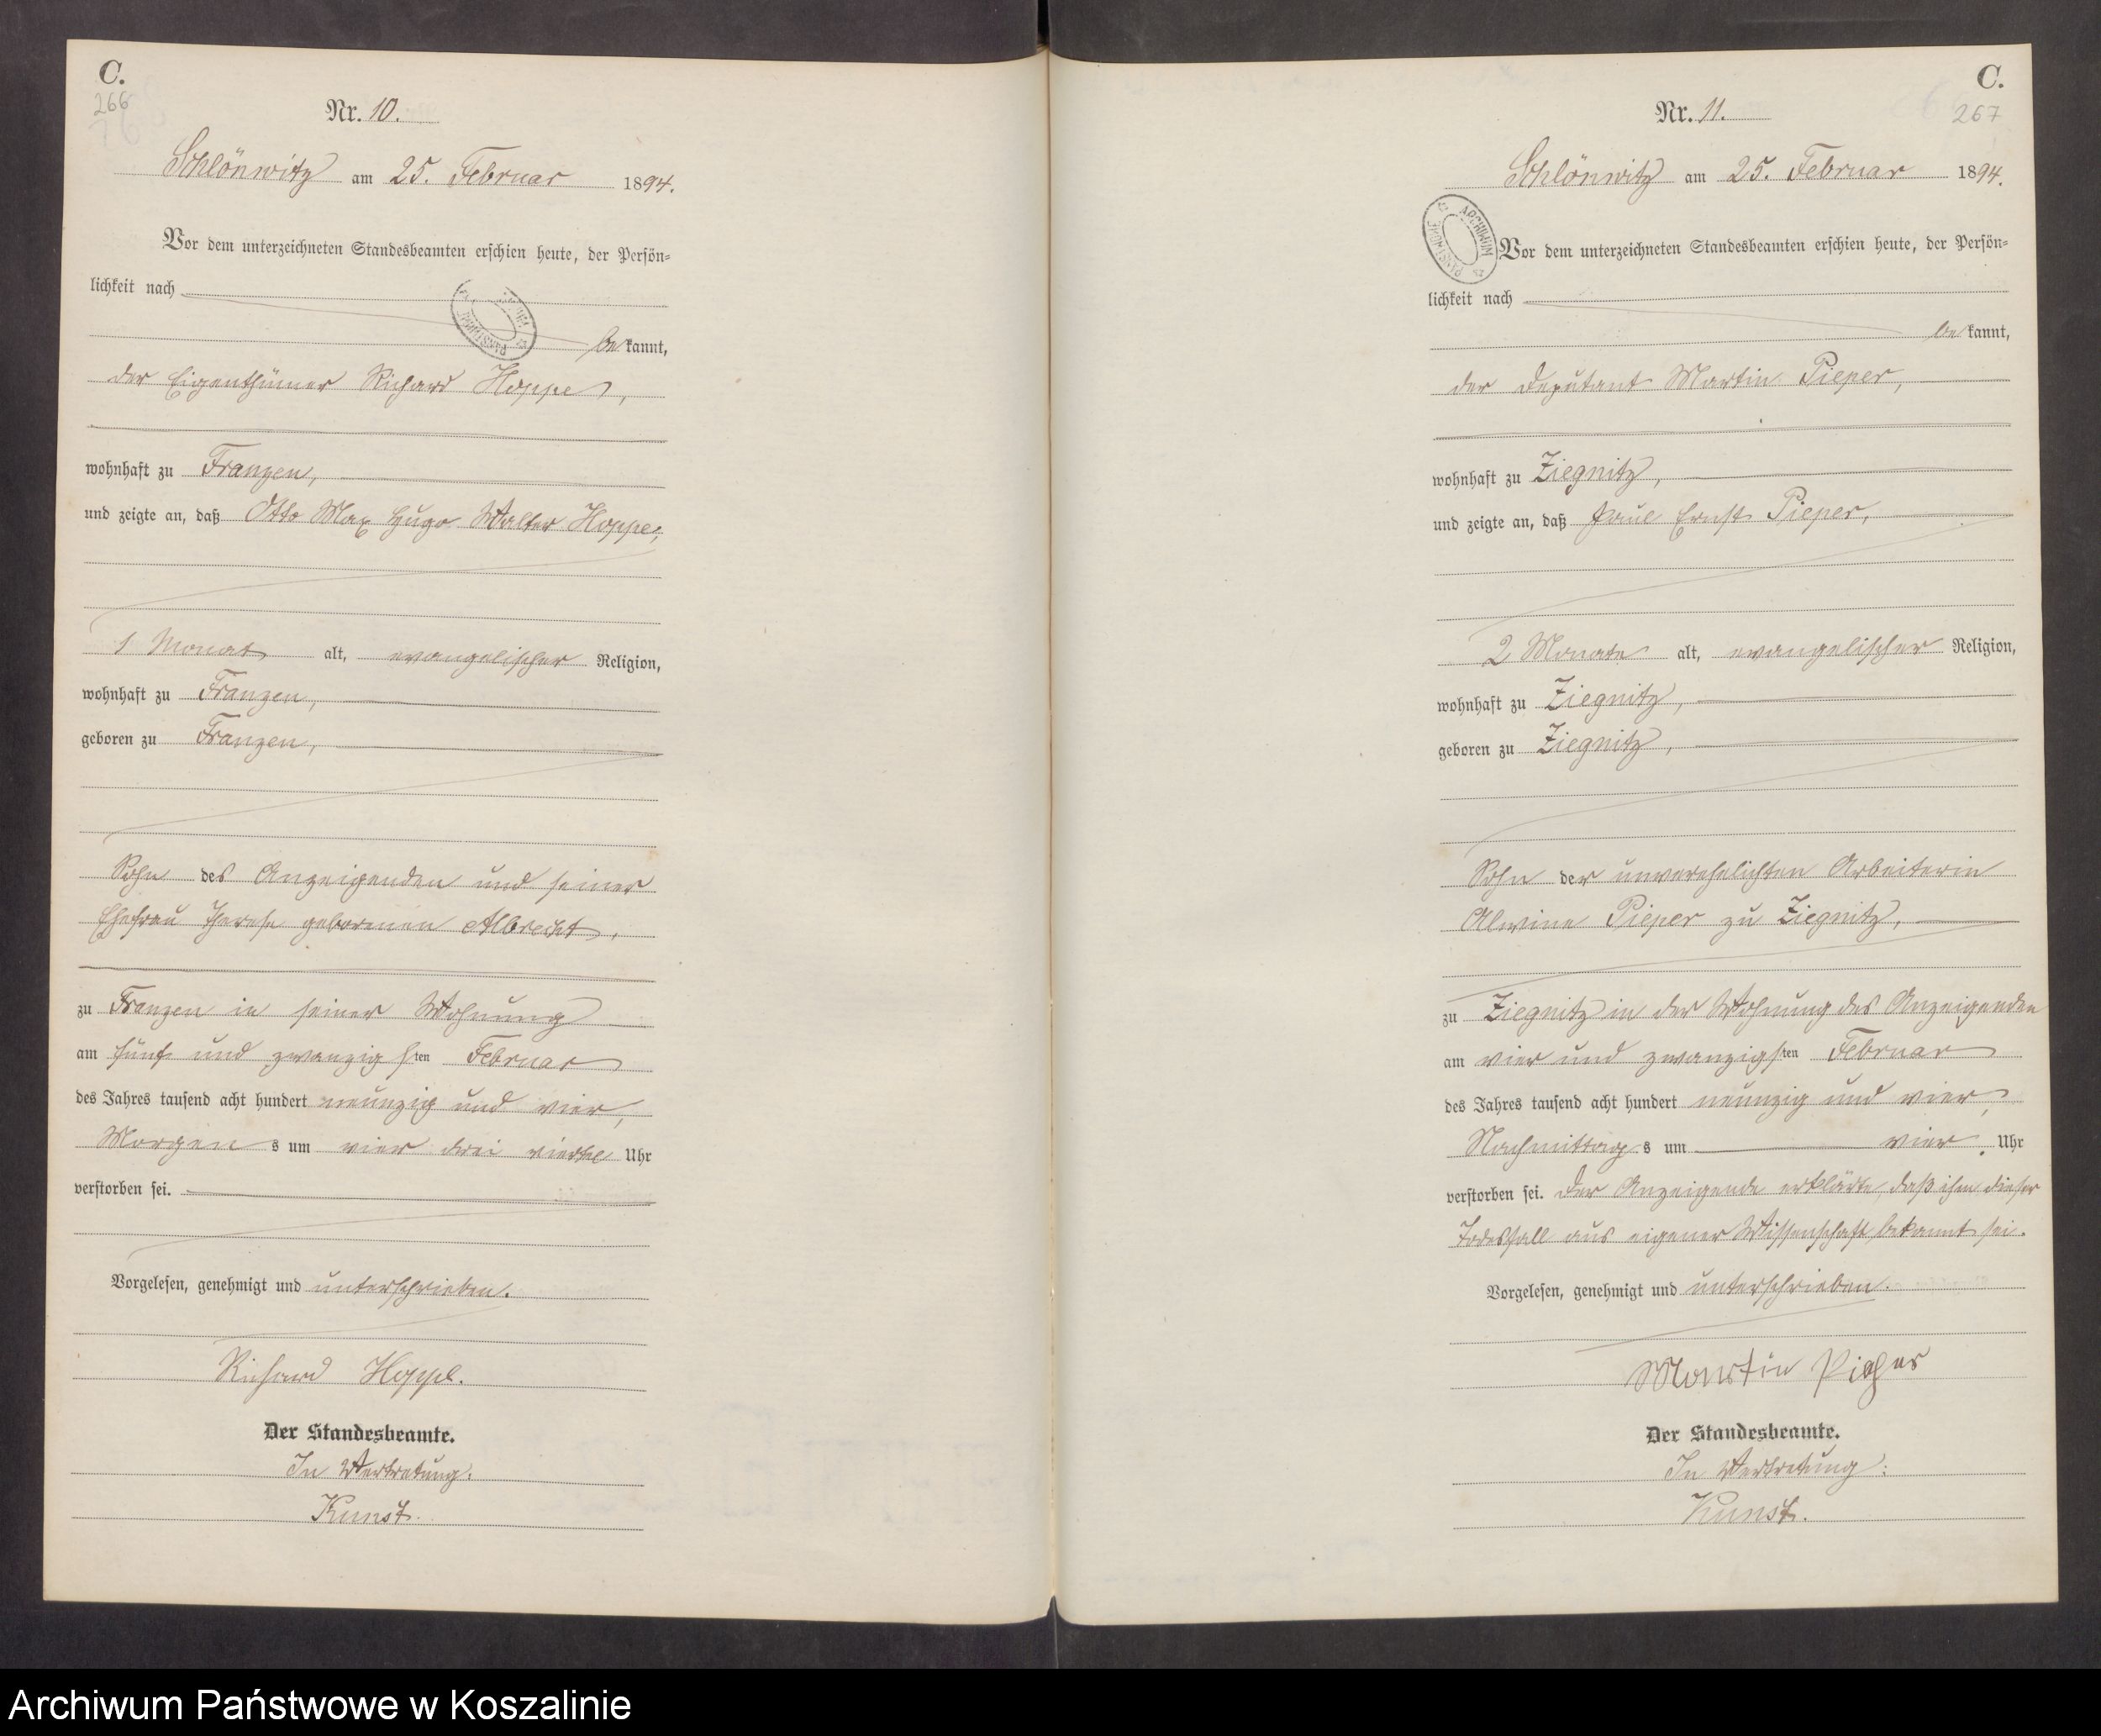 C.
266
Nr. 10.
Schlönwitz am 25. Februar 1894.
Vor dem unterzeichneten Standesbeamten erschien heute, der Persön-
lichkeit nach
bekannt,
der Eigenthümer Richard Hoppe,
wohnhaft zu Franzen,
und zeigte an, daß Otto Max Hugo Walter Hoppe,
1 Monat alt, evangelischer Religion,
wohnhaft zu Franzen,
geboren zu Franzen,
Sohn des Anzeigenden und seiner
Ehefrau Therese geborenen Albrecht,
zu Franzen in seiner Wohnung
am fünf und zwanzigsten Februar
des Jahres tausend acht hundert neunzig und vier,
Morgens um vier drei viertel Uhr
verstorben sei.
Vorgelesen, genehmigt und unterschrieben.
Richard Hoppe.
Der Standesbeamte.
In Vertretung:
Kunst.
C.
267
Nr. 11.
Schlönwitz am 25. Februar 1894.
ARCHIWUM PAŃSTWOWE
Vor dem unterzeichneten Standesbeamten erschien heute, der Persön-
lichkeit nach
bekannt,
der Deputant Martin Pieper,
wohnhaft zu Ziegnitz,
und zeigte an, daß Paul Ernst Pieper,
2 Monate alt, evangelischer Religion,
wohnhaft zu Ziegnitz,
geboren zu Ziegnitz,
Sohn der unverehelichten Arbeiterin
Alwine Pieper zu Ziegnitz,
zu Ziegnitz in der Wohnung des Anzeigenden
am vier und zwanzigsten Februar
des Jahres tausend acht hundert neunzig und vier,
Nachmittags um vier Uhr
verstorben sei. Der Anzeigende erklärte, daß ihm dieser
Todesfall aus eigener Wissenschaft bekannt sei.
Vorgelesen, genehmigt und unterschrieben.
Martin Pieper
Der Standesbeamte.
In Vertretung:
Kunst.
Archiwum Państwowe w Koszalinie